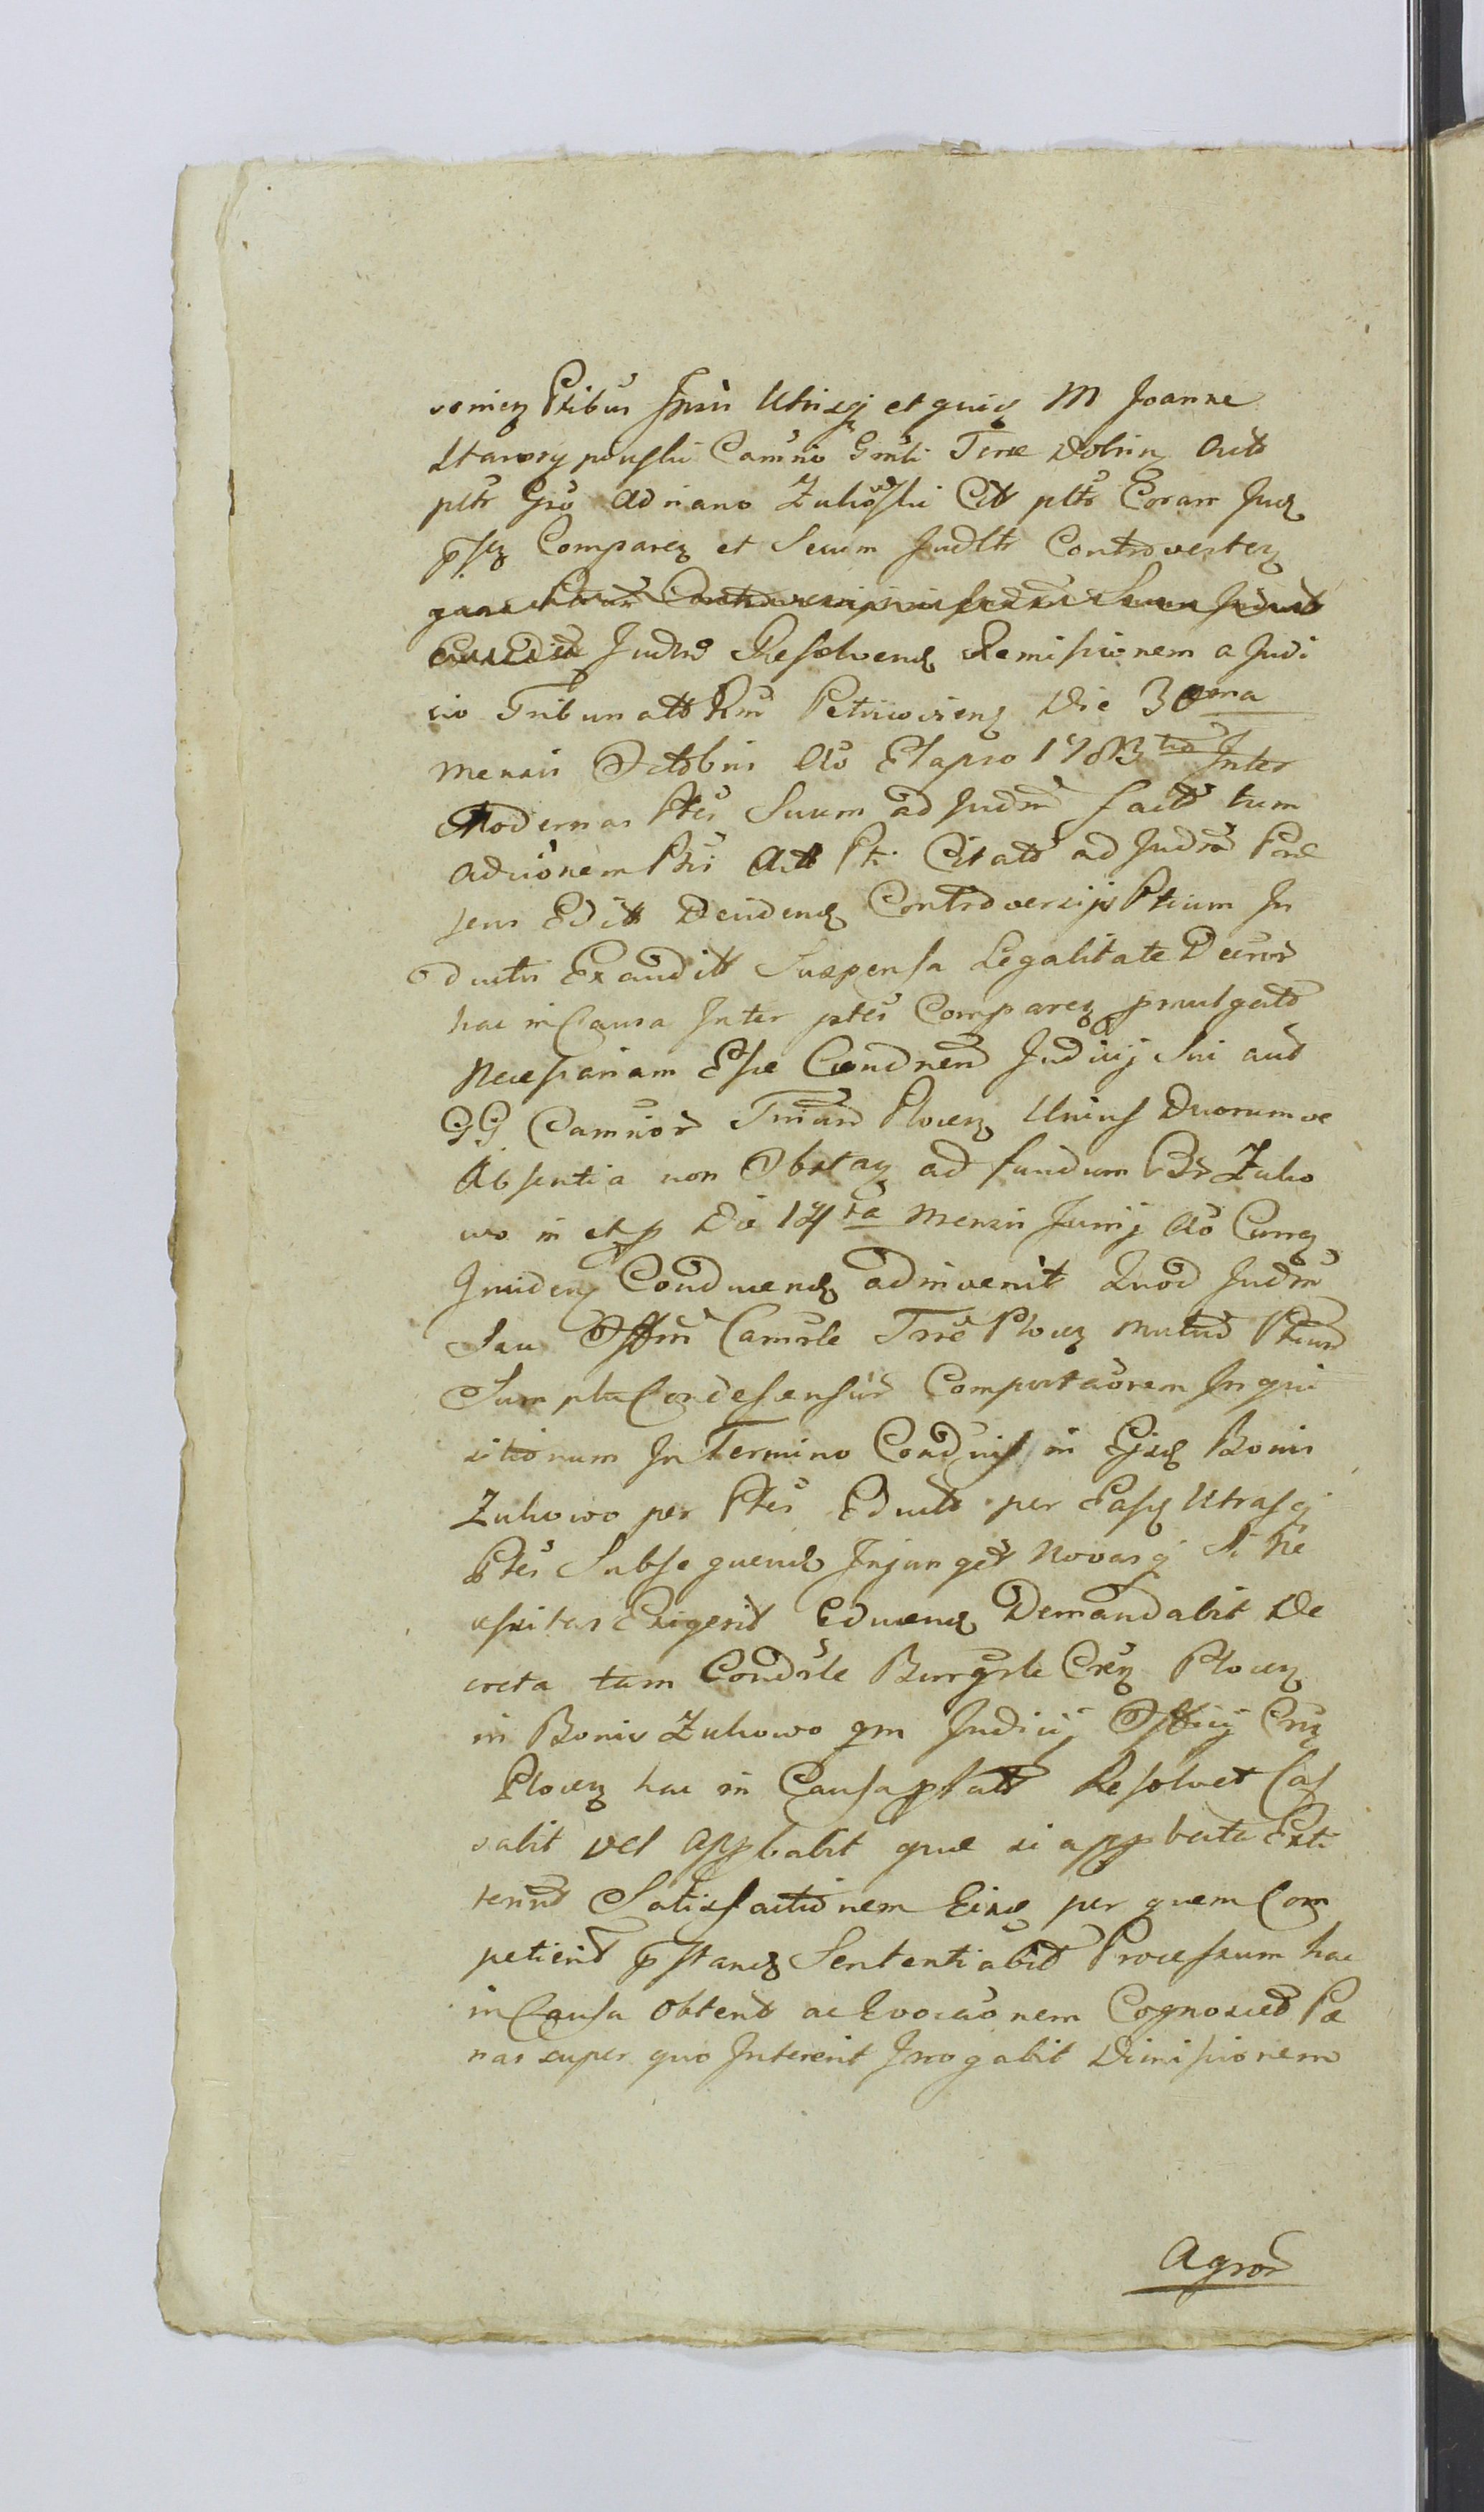 venien Ptibus Ipsis Utrisq et quis M Joanne
Starorypinski Camrio Grnli Terræ Dobrin Act
pltr Gso Adriano Zukowski Citt pltr Coram Jud
psn Comparen et Secum Judltr Controverten
Judm Resolvend Remissionem a Judi
cio Tribunatt Rni Petricovien Die 30ma
Mensis Octobris Ao Elapso 1783tio Inter
Modernas Ptes Suum ad Judm fact tum
Adcionem Ptis Act Pti Citato ad Judm Præ
sens Editt Decidend Controversijs Ptium In
ductis Exauditt Suspensa Legalitate Decror
hac in Causa Inter ptes Comparen pmulgato
Necessariam Esse Condnem Judicij Sui aut
GG Camrior Trium Plocen Unius Duorumve
Absentia non Obstan ad fundum Br Zuko
wo in et p Die 14ta Mensis Junij Ao Curren
Inciden Conducend adinvenit Quod Judm
Seu Offm Camrle Trræ Plocen mutuo Ptium
Sumptu Condescensur Comportaonem Inqui
sitionum In Termino Conduis in Ejsd Bonis
Zukowo per Ptes Educt per Easd Utrasq
Ptes Subsequend Injunget Novasq Si Ne
cessitas Exigerit Educend Demandabit De
creta tam Condrle Burgrle Cren Plocen
in Bonis Zukowo qm Judicij Officij Crn
Plocen hac in Causa plat Resolvet Cas
sabit vel Appbabit quæ si appbata Exti
terint Satisfactionem Eisd per quem Com
petierit pstand Sententiabit Processum hac
in Causa Obtent ac Evocaonem Cognoscet Pæ
nas super quo Intererit Irrogabit Dimissionem
Agror